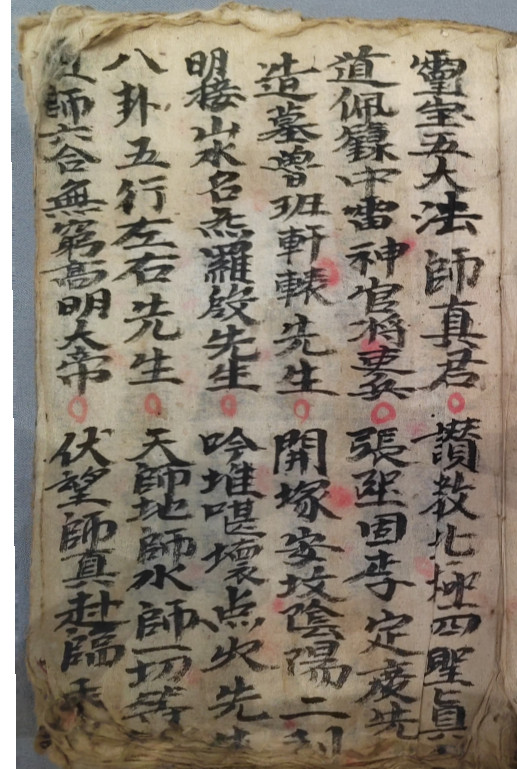 靈宝五大法師真君○讃教北極四聖真
道佩籙中雷神官将吏兵○張堅固李定度先
造墓曽班軒轅先生○開塚安坟陰陽二
明接山水名羅啟先生○吟堆堪壞点火先生
八卦五行左右先生○天師地師水師一切等
師六合無窮高明大帝○伏望師真赴臨